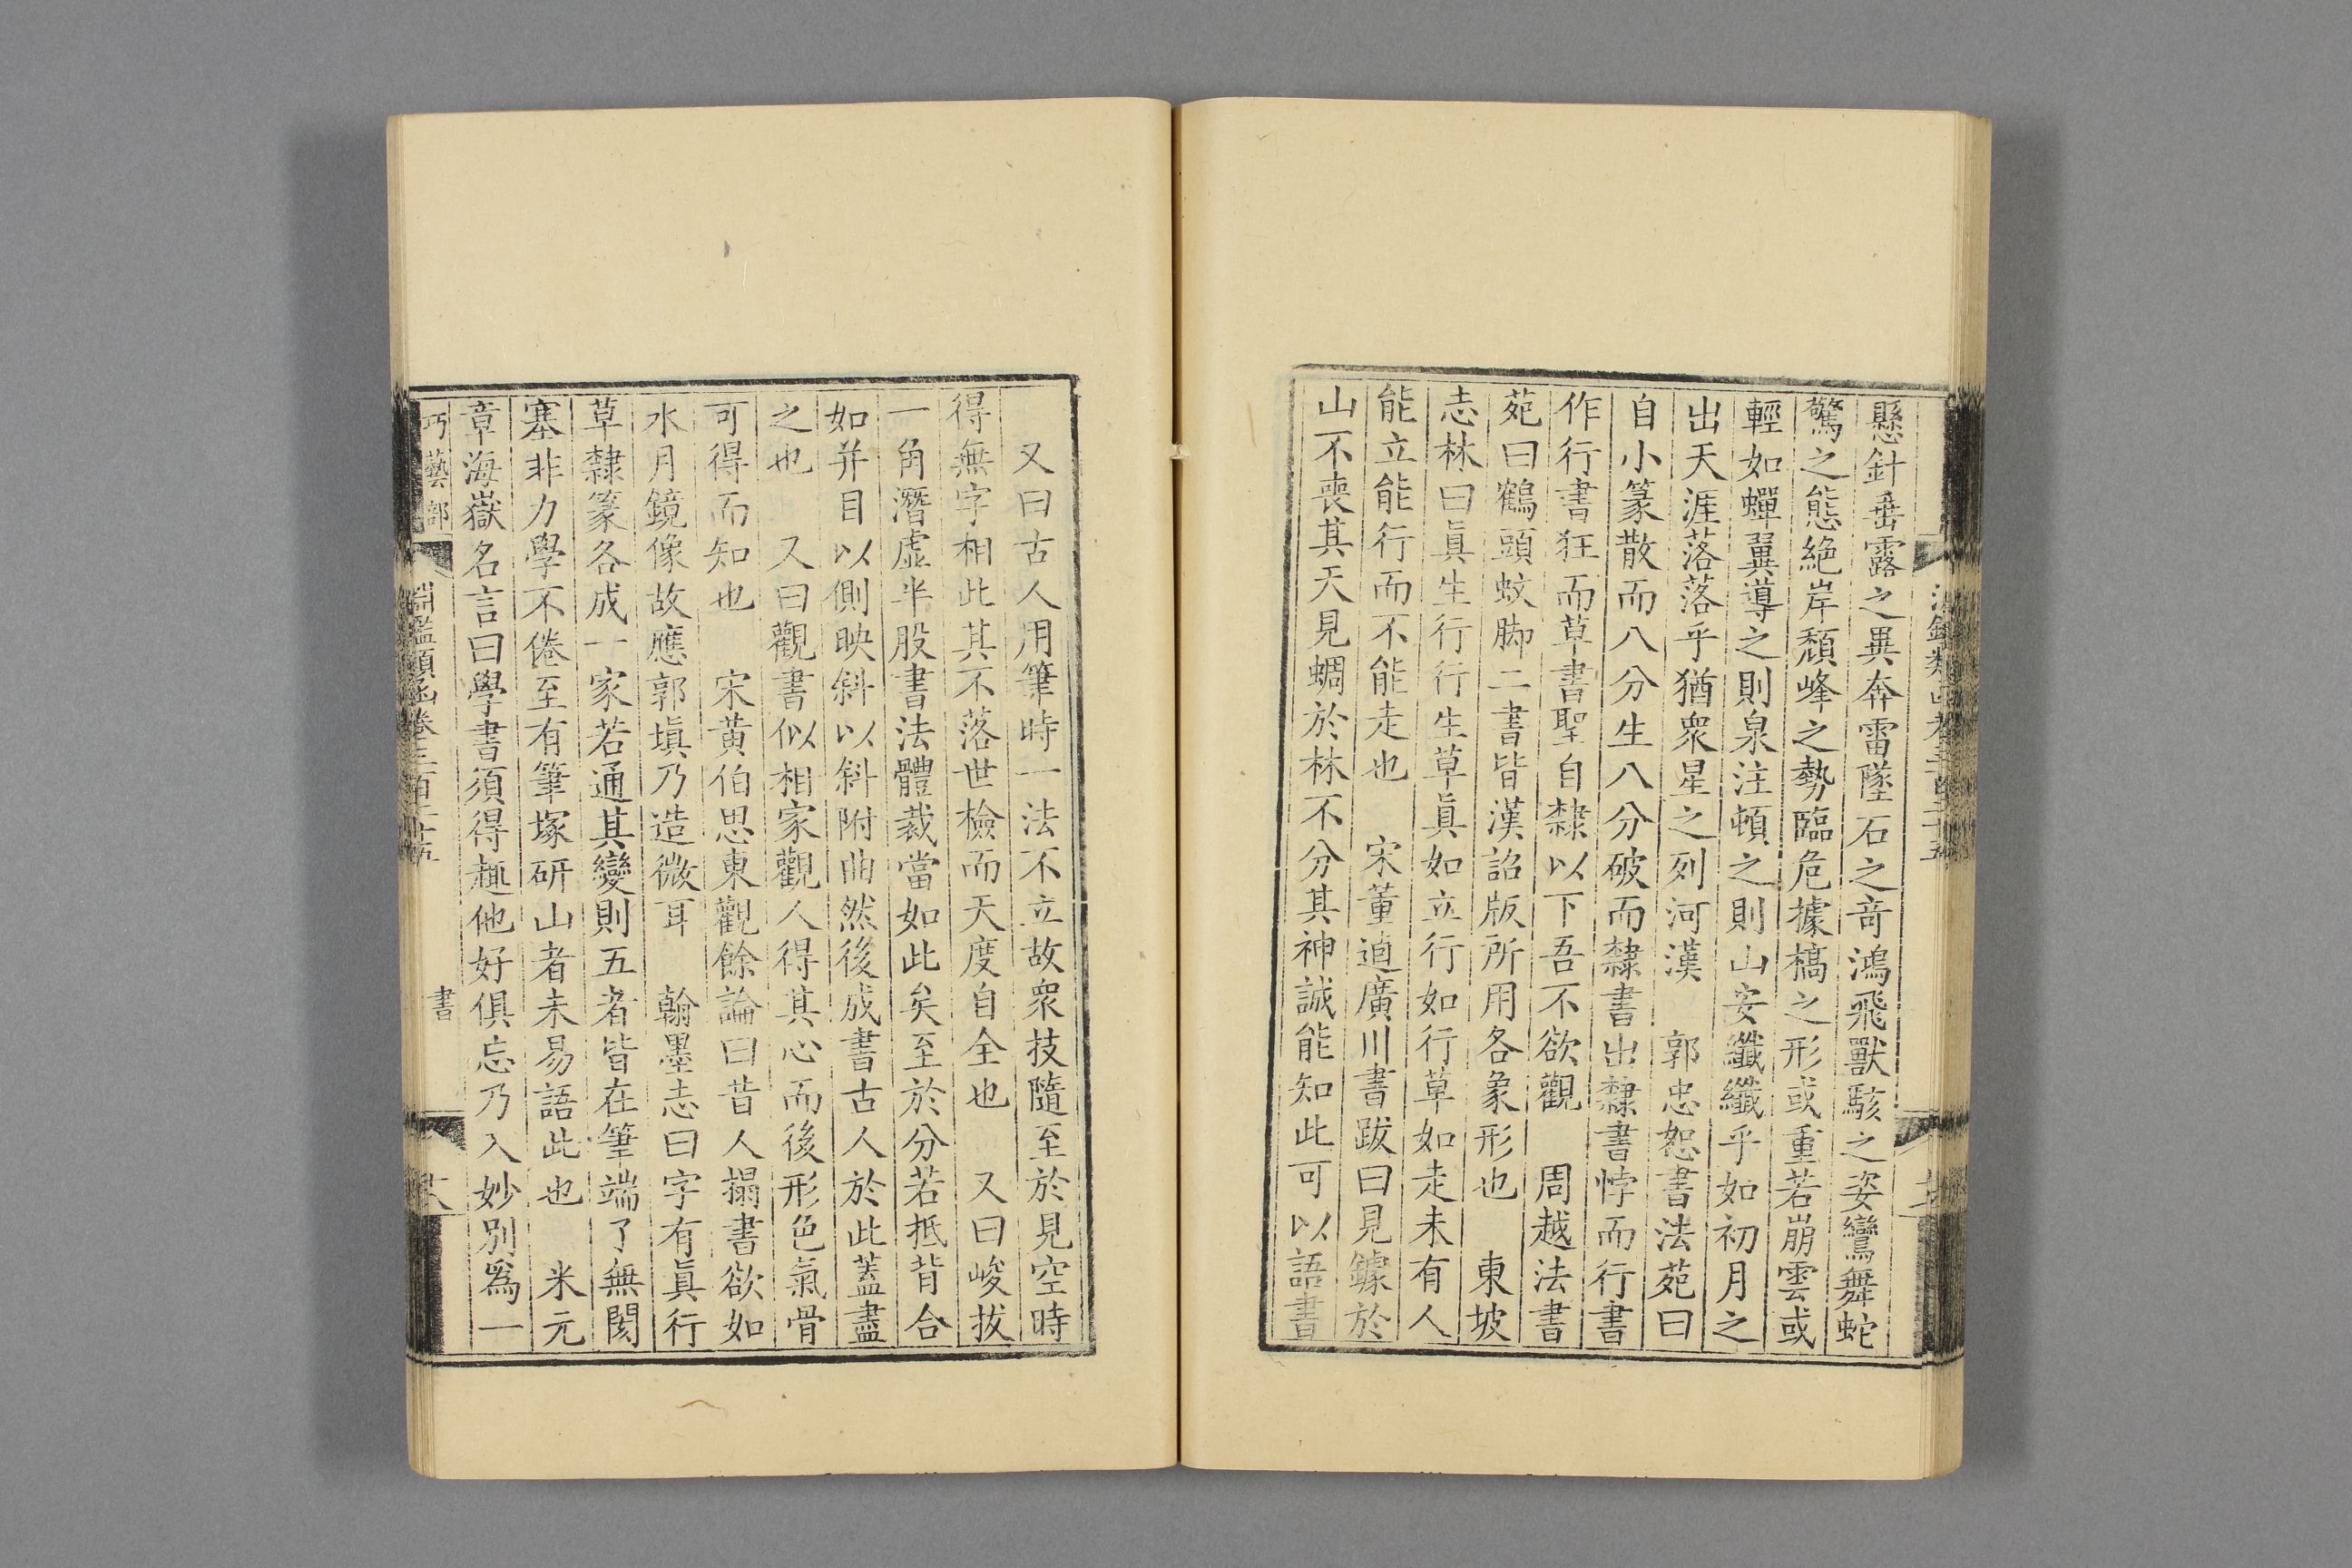 懸針垂露之異奔雷墜石之竒鴻飛獸駭之姿鸞舞蛇
驚之態絶岸頽峰之勢臨危據槁之形或重若崩雲或
輕如蟬翼導之則泉注頓之則山安纖纖乎如初月之
出天涯落落乎猶衆星之列河漢　郭忠恕書法苑曰
自小篆散而八分生八分破而隸書出隸書悖而行書
作行書狂而草書聖自隸以下吾不欲觀　周越法書
苑曰鶴頭蚊脚二書皆漢詔版所用各象形也　東坡
志林曰眞生行行生草眞如立行如行草如走未有人
能立能行而不能走也　宋董逌廣川書跋曰見鐻於
山不喪其天見蜩於林不分其神誠能知此可以語書
又曰古人用筆時一法不立故衆技隨至於見空時
得無字相此其不落世檢而天度自全也　又曰峻拔
一角潛虚半股書法體裁當如此矣至於分若抵背合
如并目以側映斜以斜附曲然後成書古人於此蓋盡
之也　又曰觀書似相家觀人得其心而後形色氣骨
可得而知也　宋黄伯思東觀餘論曰昔人搨書欲如
水月鏡像故應郭塡乃造微耳　翰墨志曰字有眞行
草隸篆各成一家若通其變則五者皆在筆端了無閡
塞非力學不倦至有筆塚研山者未易語此也　米元
章海嶽名言曰學書須得趣他好俱忘乃入妙別爲一
巧藝部　淵鑑類函卷三百二十五　書